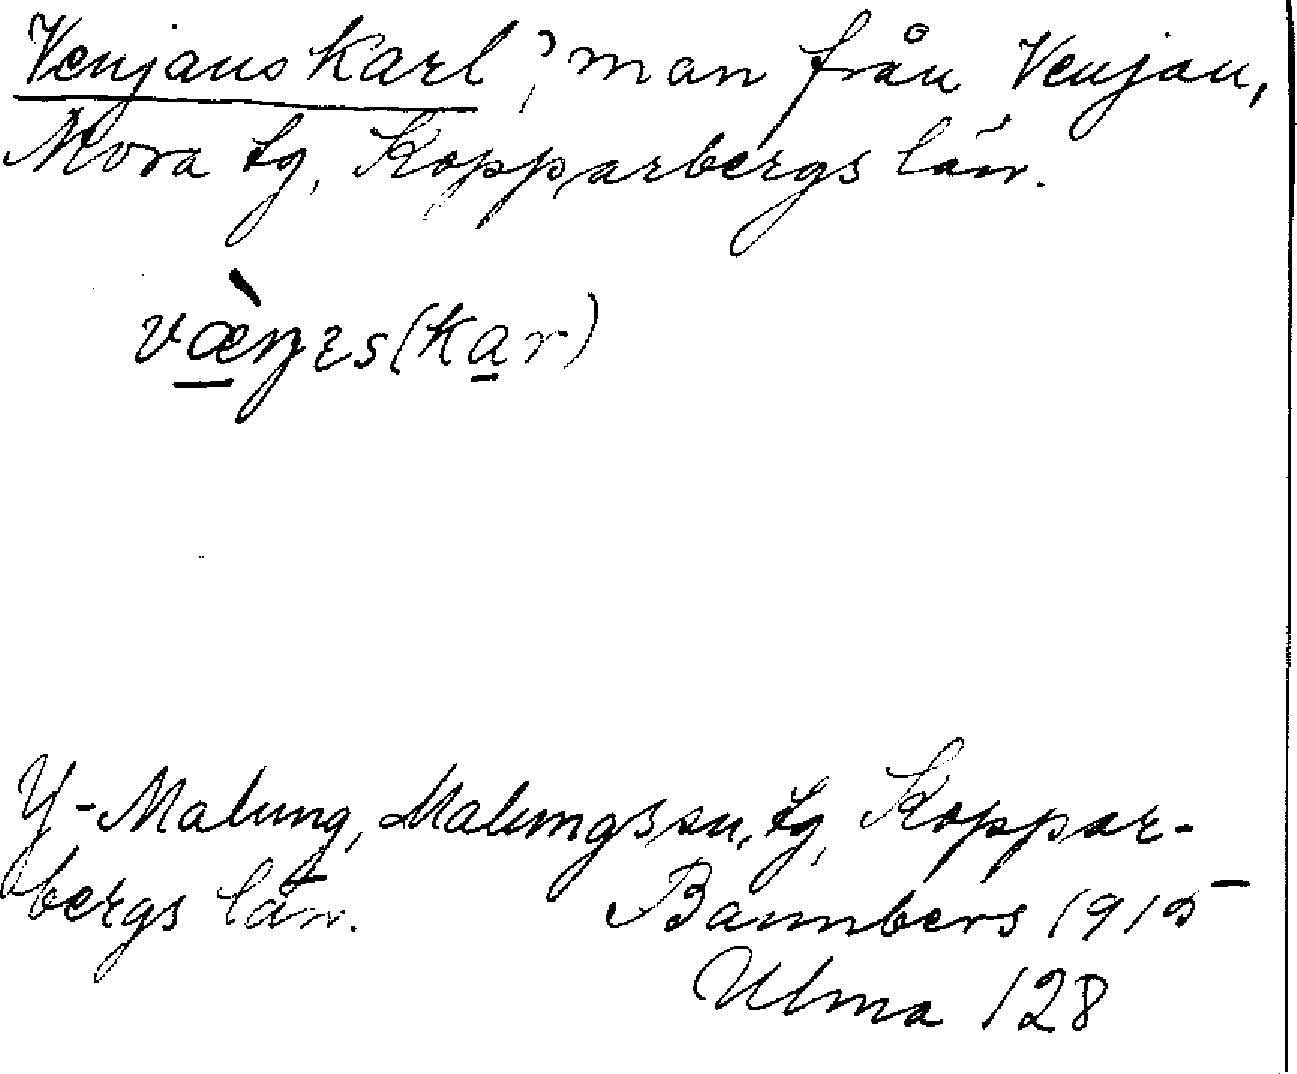 Venjanskarl, man från Venjan,
Mora tg, Kopparbergs län.
væ̀ŋɛs(kar)
Y-Malung, Malungs sn, tg, Koppar-
bergs län. 1915
Ulma 128